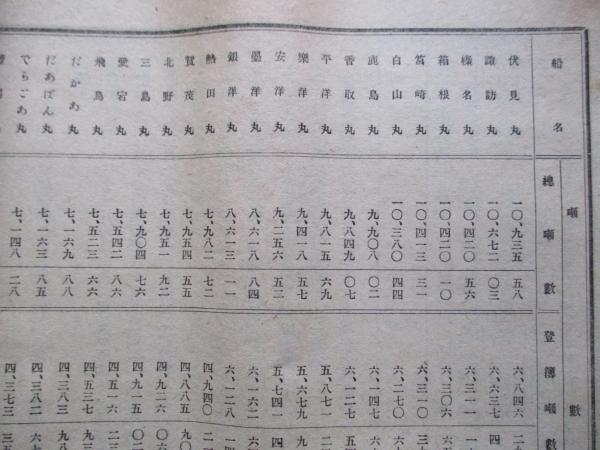 船名
噸數
總噸數
登簿噸數
伏見丸 一〇、九三五 五八 六、八四六
諏訪丸 一〇、六七二 〇三 六、六三七
榛名丸 一〇、四二〇 五六 六、三一一
箱根丸 一〇、四二〇 一〇 六、三〇六
筥崎丸 一〇、四一三 三一 六、三一〇
白山丸 一〇、三八〇 四四 六、二七〇
鹿島丸 九、九〇八 〇二 六、一四九
香取丸 九、八四九 〇七 六、一二七
平洋丸 九、八一五 六九 五、八七一
樂洋丸 九、四一八 五七
安洋丸 九、二五六 五二 五、七四一
墨洋丸 八、六一八 八四 六、一六二
銀洋丸 八、六一三 一一 六、一二八
熱田丸 七、九八二 七二 四、九四〇
賀茂丸 七、九五四 五五 四、八八五
北野丸 七、九五一 九二 四、九二六
三島丸 七、九〇四 七六 四、九一五
愛宕丸 七、五四二 八六 四、五一六
飛鳥丸 七、五二三 六六 四、五三七
だかあ丸 七、一六九 八八 四、三八三
だあばん丸 七、一六三 八五 四、三八二
でらごあ丸 七、一四八 二八 四、三七三